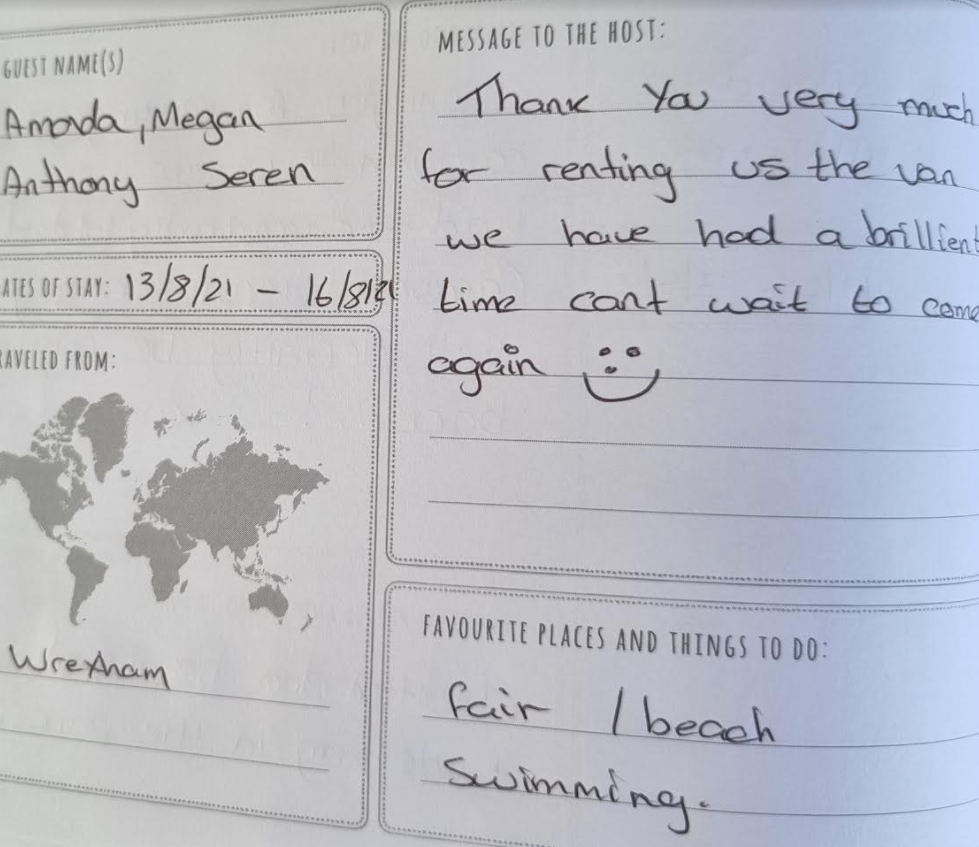 GUEST NAME(S)
Amanda, Megan
Anthony Seren
ATES OF STAY: 13/8/21 - 16/8/21
RAVELED FROM:
Wrexham
MESSAGE TO THE HOST:
Thank You very much
for renting us the van
we have had a brillient
time cant wait to come
again
FAVOURITE PLACES AND THINGS TO DO:
fair / beach
Swimming.